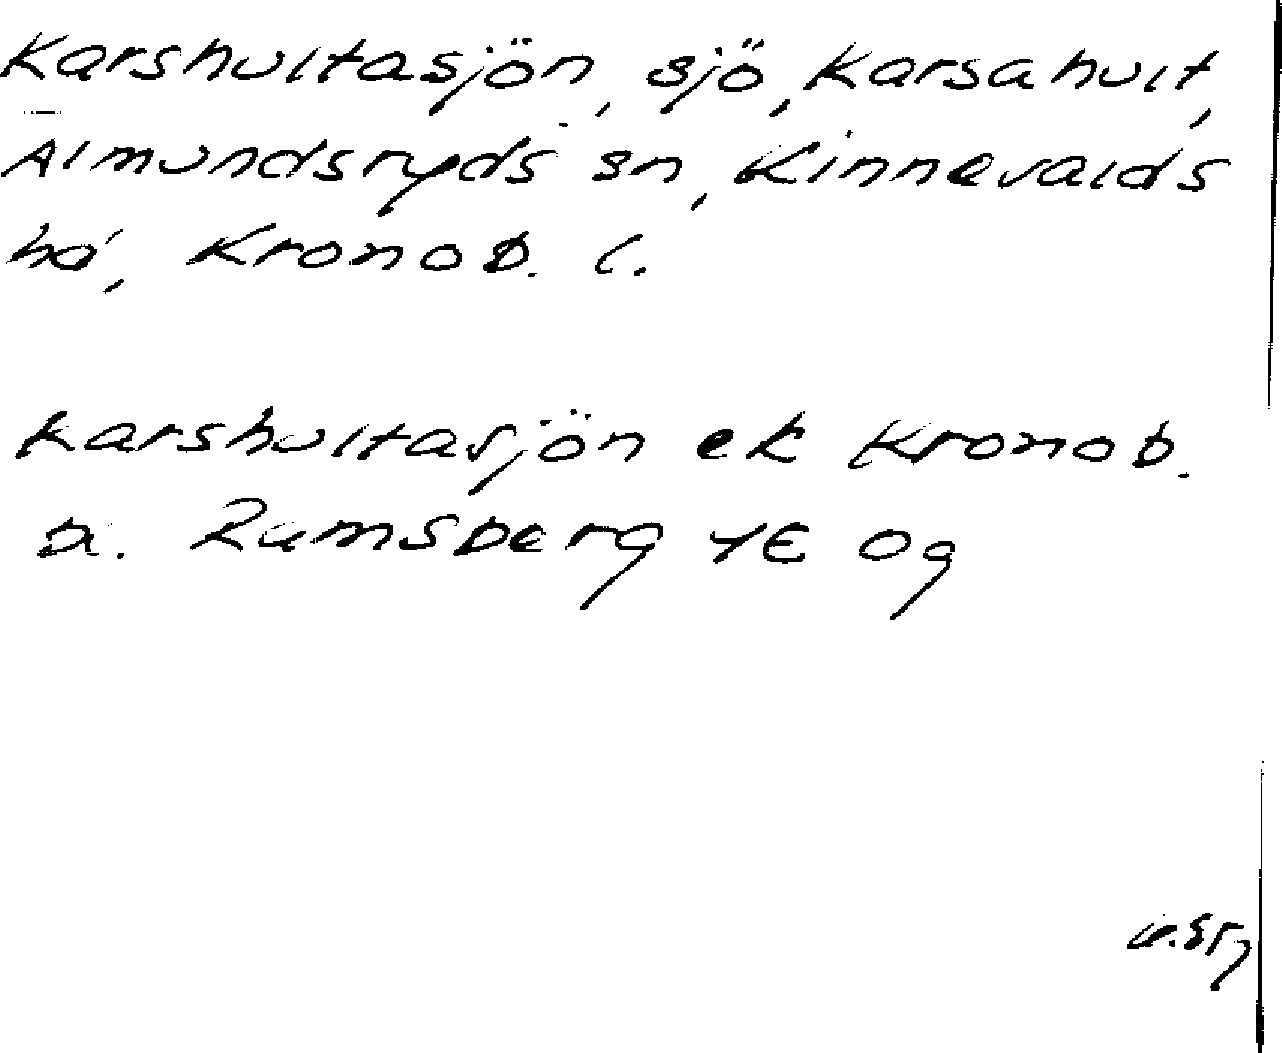 Karshultasjön, sjö, Karsahult,
Almundsryds sn, Kinnevalds
hd, Kronob. l.
Karshultasjön ek Kronob.
Ramsberg 1E Og